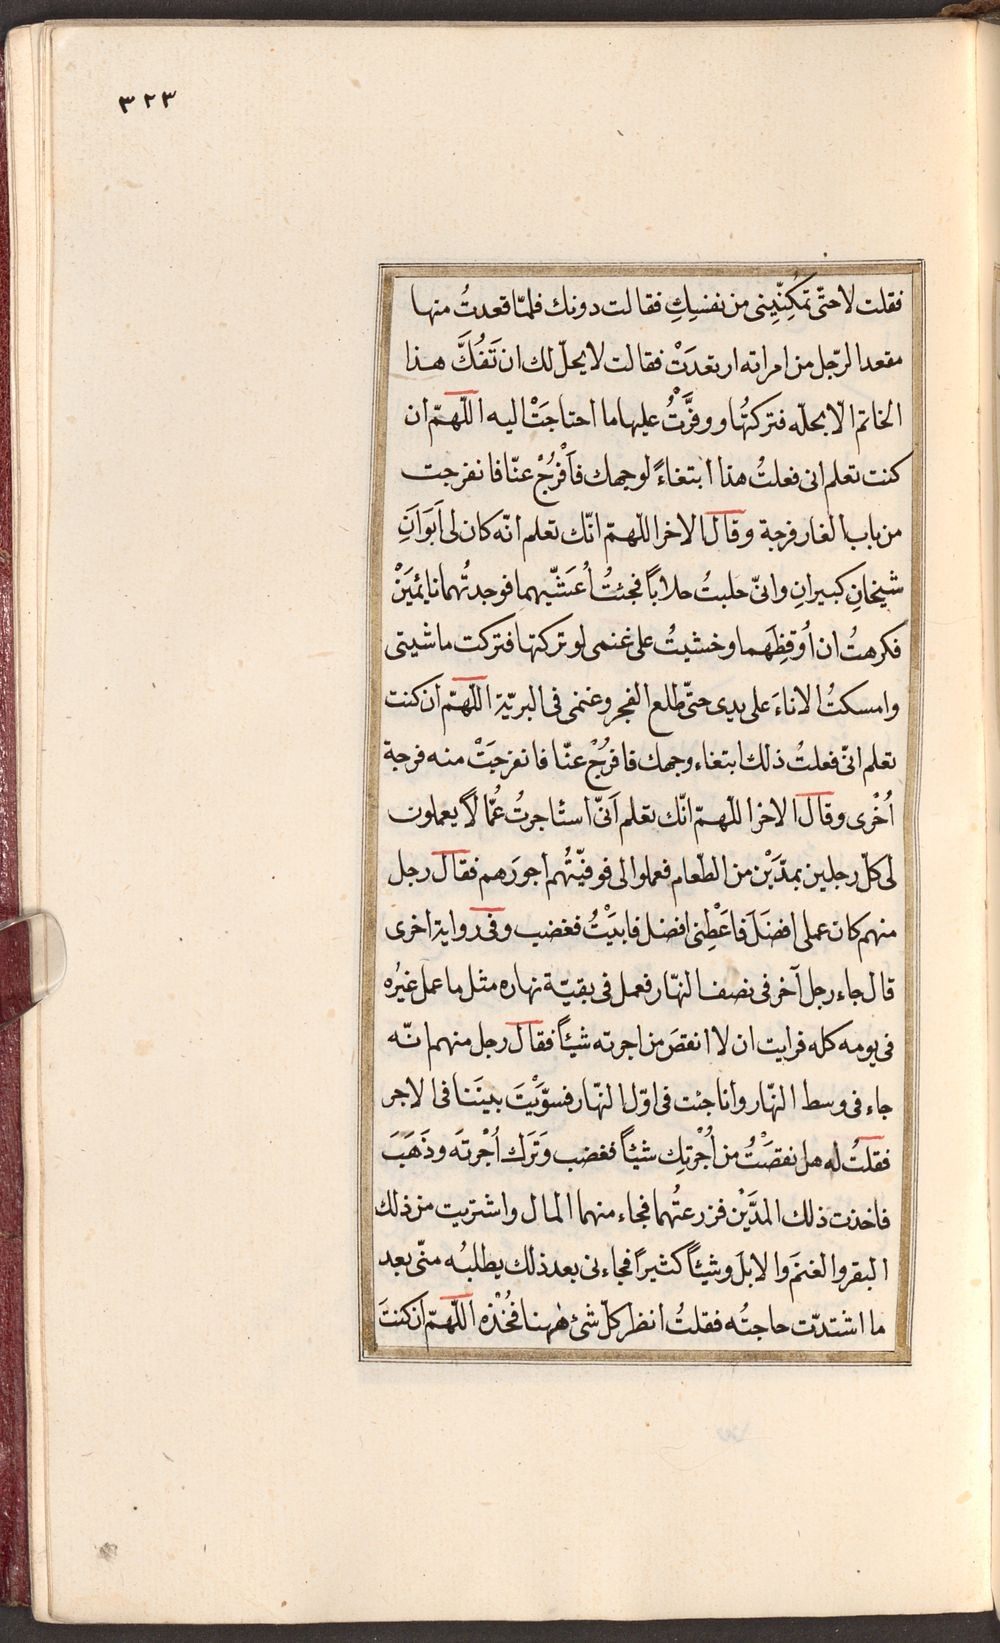 ٣٢٣
فقلت لا حتّى تمكِنِّينى من نفسِكِ فقالت دونك فلمّا قعدتُ منها
مقعد الرّجل من امراته ارتعدَتْ فقالت لا يحلّ لك ان تَفُكَّ هذا
الخاتم الّا بحلّه فتركتُها ووفَّرْتُ عليها ما احتاجَتْ اليه اللّهمّ ان
كنت تعلم انى فعلتُ هذا ابتغاءً لوجهك فاَفْرُجْ عنّا فانفرجت
من باب الغار فرجة وقال الاخر اللّهمّ انّك تعلم انّه كان لى اَبَوَانِ
شيخانِ كبيرانِ وانّى حلبتُ حلابًا فجئتُ اُعَشّيهما فوجدتُهما نايئمَيْنْ
فكرهتُ ان اُوقِظَهما وخشيتُ على غنمى لو تركتها فتركت ماشيتى
وامسكتُ الاناءَ على يدى حتّى طلع الفجر وغنمى فى البريّة اللّهمّ ان كنت
تعلم انّى فعلتُ ذلك ابتغاء وجهك فافرُجْ عنّا فانفرجَتْ منه فرجة
اُخْرى وقال الاخر اللّهمّ انّك تعلم اَنّى استاجرتُ عُمّالًا يعملون
لى كلّ رجلين بمدَّيْن من الطّعام فعملوا لى فوفيّتُهم اجورَهم فقال رجل
منهم كان عملى افضَلَ فاعَْطِنى افضل فابَيْتُ فغضب وفى رواية اخرى
قال جاء رجل آخر فى نصف النهّار فعمل فى بقيّة نهاره مثل ما عمل غيرُه
فى يومه كله فرايت ان لا انقصَ من اجرته شيئًا فقال رجل منهم انّه
جاء فى وسط النهّار وانا جئت فى اوّل النهّار فسوَّيْتَ بينَنا فى الاجر
فقلتُ له هل نقصْتُ من اُجْرتِك شيئًا فغضب وَتَرَك اُجْرتَه وذَهَبَ
فاخذت ذلك المدَّيْن فزرعتُهما فجاء منهما المال واشتريت من ذلك
البقر والغنمَ والابلَ وشيئًا كثيرًا فجاءنى بعد ذلك يطلبُه منّى بعد
ما اشتدّت حاجتُه فقلتُ انظر كلّ شئ ههنا فُخُذه اللّهمّ ان كنتَ